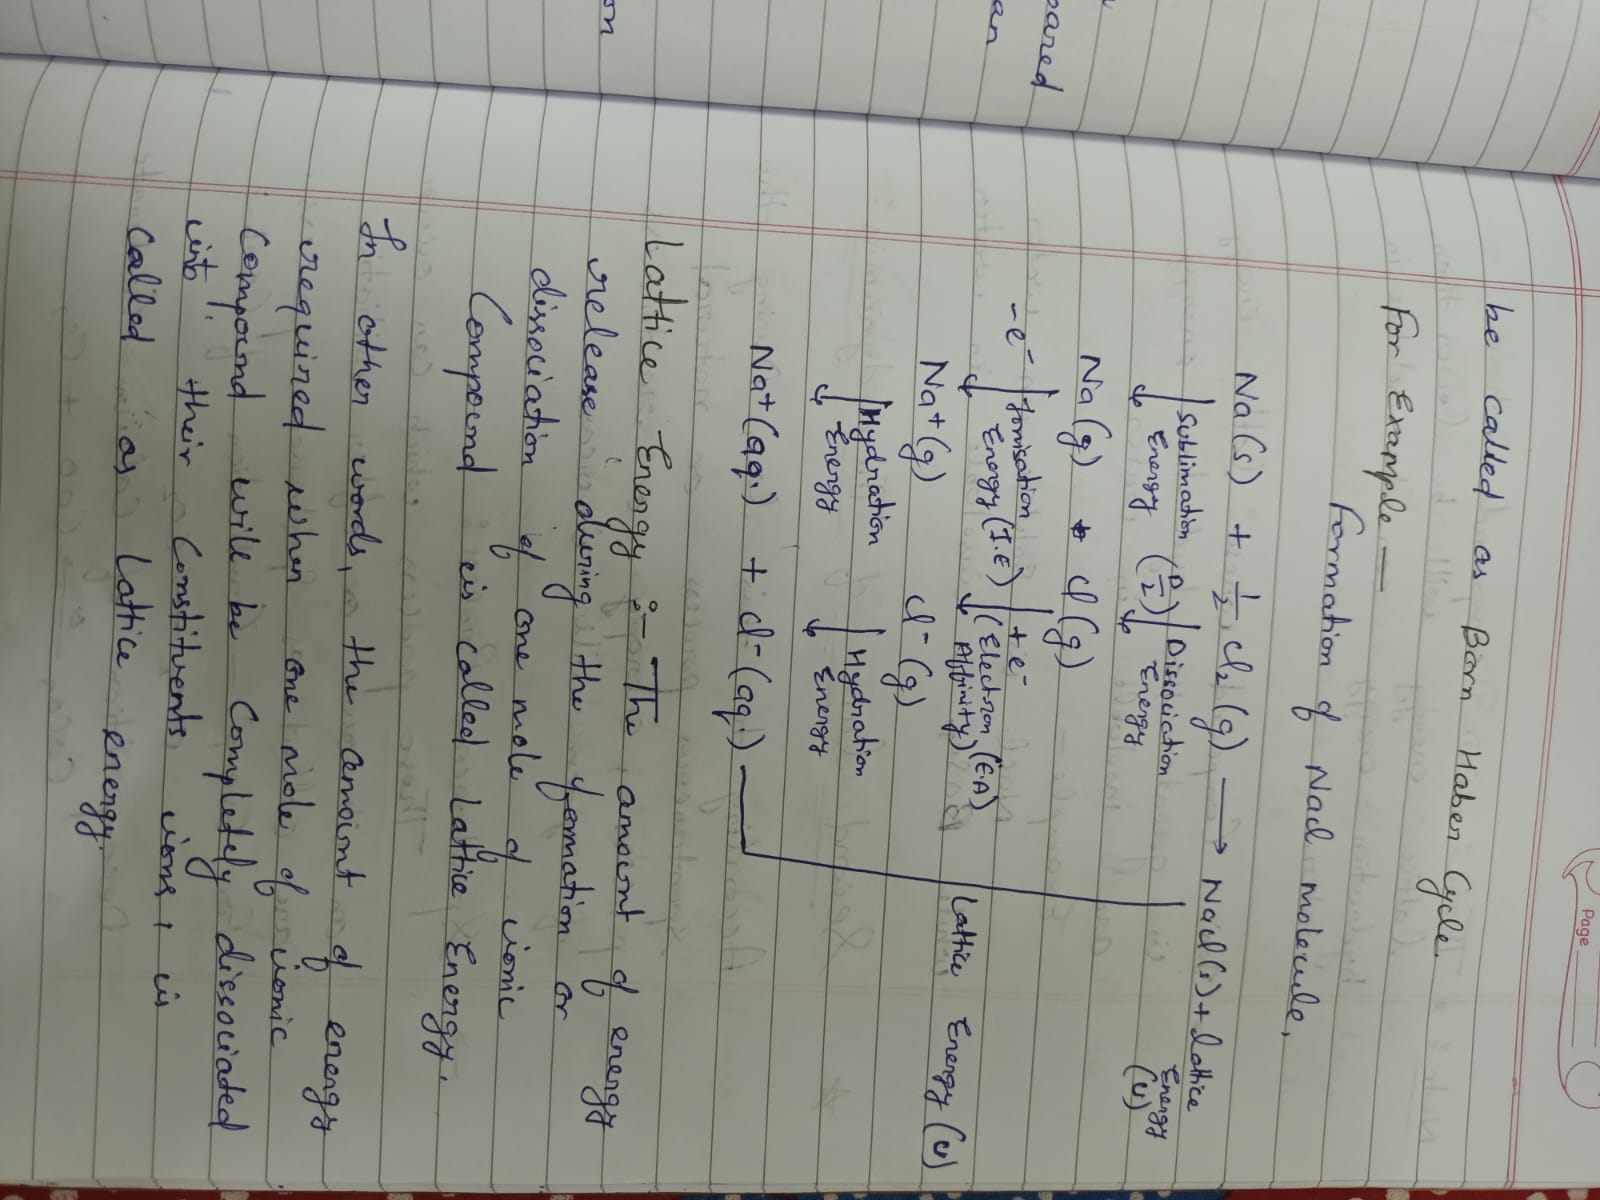 pared
an
on
Page
be called as Born Haber Cycle.
For Example —
Formation of Nacl molecule,
Na(s) + 1/2 Cl2 (g) ⟶ Nacl(s) + Lattice Energy (U)
Sublimation Energy (D/2) Dissociation Energy
Na(g) + Cl(g)
-e⁻ Ionisation Energy (I.E) +e⁻ (Electron Affinity) (E.A)
Na+(g) Cl⁻(g)
Lattice Energy (U)
Hydration Energy Hydration Energy
Na+(aq.) + Cl⁻(aq.)
Lattice Energy :- The amount of energy
release during the formation or
dissociation of one mole of ionic
Compound is called Lattice Energy.
In other words, the amount of energy
required when one mole of ionic
Compound will be Completely dissociated
into their Constituents ions, is
called as Lattice energy.